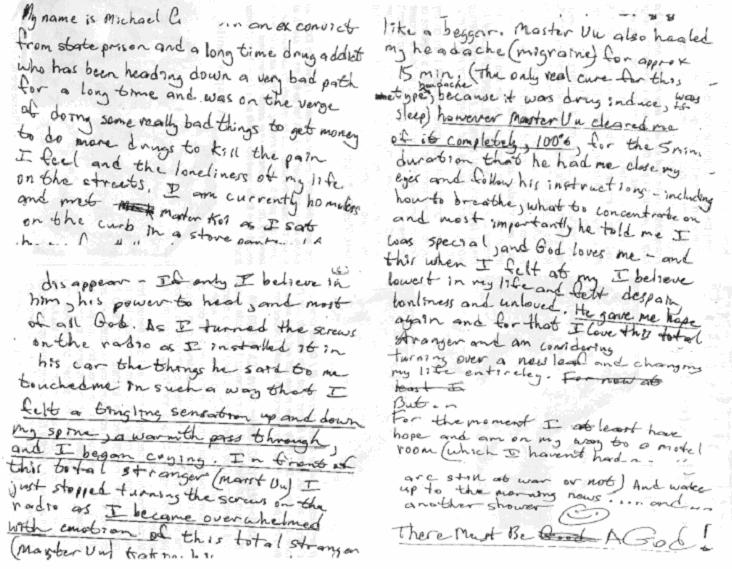 My name is Michael C ... an ex convict
from state prison and a long time drug addict
who has been heading down a very bad path
for a long time and was on the verge
of doing some really bad things to get money
to do more drugs to kill the pain
I feel and the loneliness of my life
on the streets, I am currently homeless
and met Master Koi as I sat
on the curb in a store
disappear - If only I believe in
him, his power to heal, and most
of all God. As I turned the screws
on the radio as I installed it in
his car the things he said to me
touched me in such a way that I
felt a tingling sensation up and down
my spine, a warmth pass through,
and I began crying. In front of
this total stranger (Masst Uu) I
just stopped turning the screws on the
radio as I became overwhelmed
with emotion of this total stranger
(Master Uu)
like a beggar. Master Uu also healed
my headache (migraine) for approx
15 min. (The only real cure for this
headache
type, because it was drug induce, was
sleep) however Master Uu cleared me
of it completely, 100%, for the 5 min.
duration that he had me close my
eyes and follow his instructions - including
how to breathe, what to concentrate on
and most importantly he told me I
was special, and God loves me - and
this when I felt at my I believe
lowest in my life and felt despair
lonliness and unloved. He gave me hope
again and for that I love this total
stranger and am considering
turning over a new leaf and changing
my life entireley. For now at
least I
But...
For the moment I at least have
hope and am on my way to a motel
room (which I haven't had
are still at war or not) And wake
up to the morning news .... and ...
another shower
There Must Be Good A God!